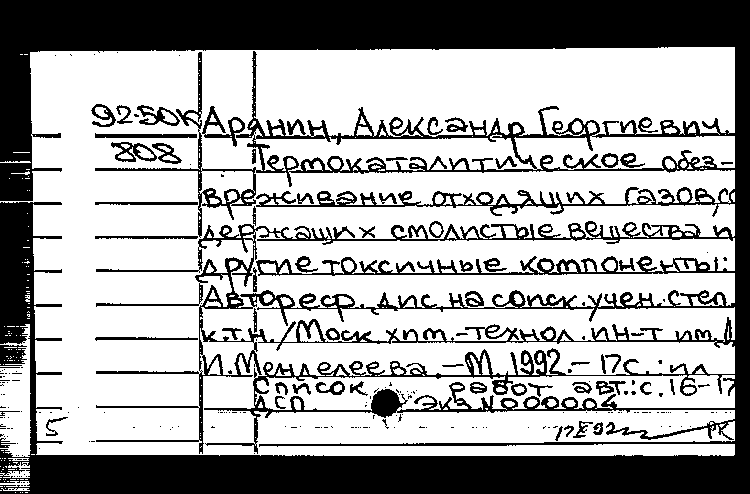 92-50к Арянин, Александр Георгиевич.
808 Термокаталитическое обез-
вреживание отходящих газов, со
держащих смолистые вещества и
другие токсичные компоненты:
Автореф. дис. на соиск. учен. степ.
к.т.н. / Моск. хим.-технол. ин-т им. Д.
И. Менделеева. – М., 1992. – 17с. : ил
Список работ авт.: с. 16-17
ДСП. Экз. N000004.
5